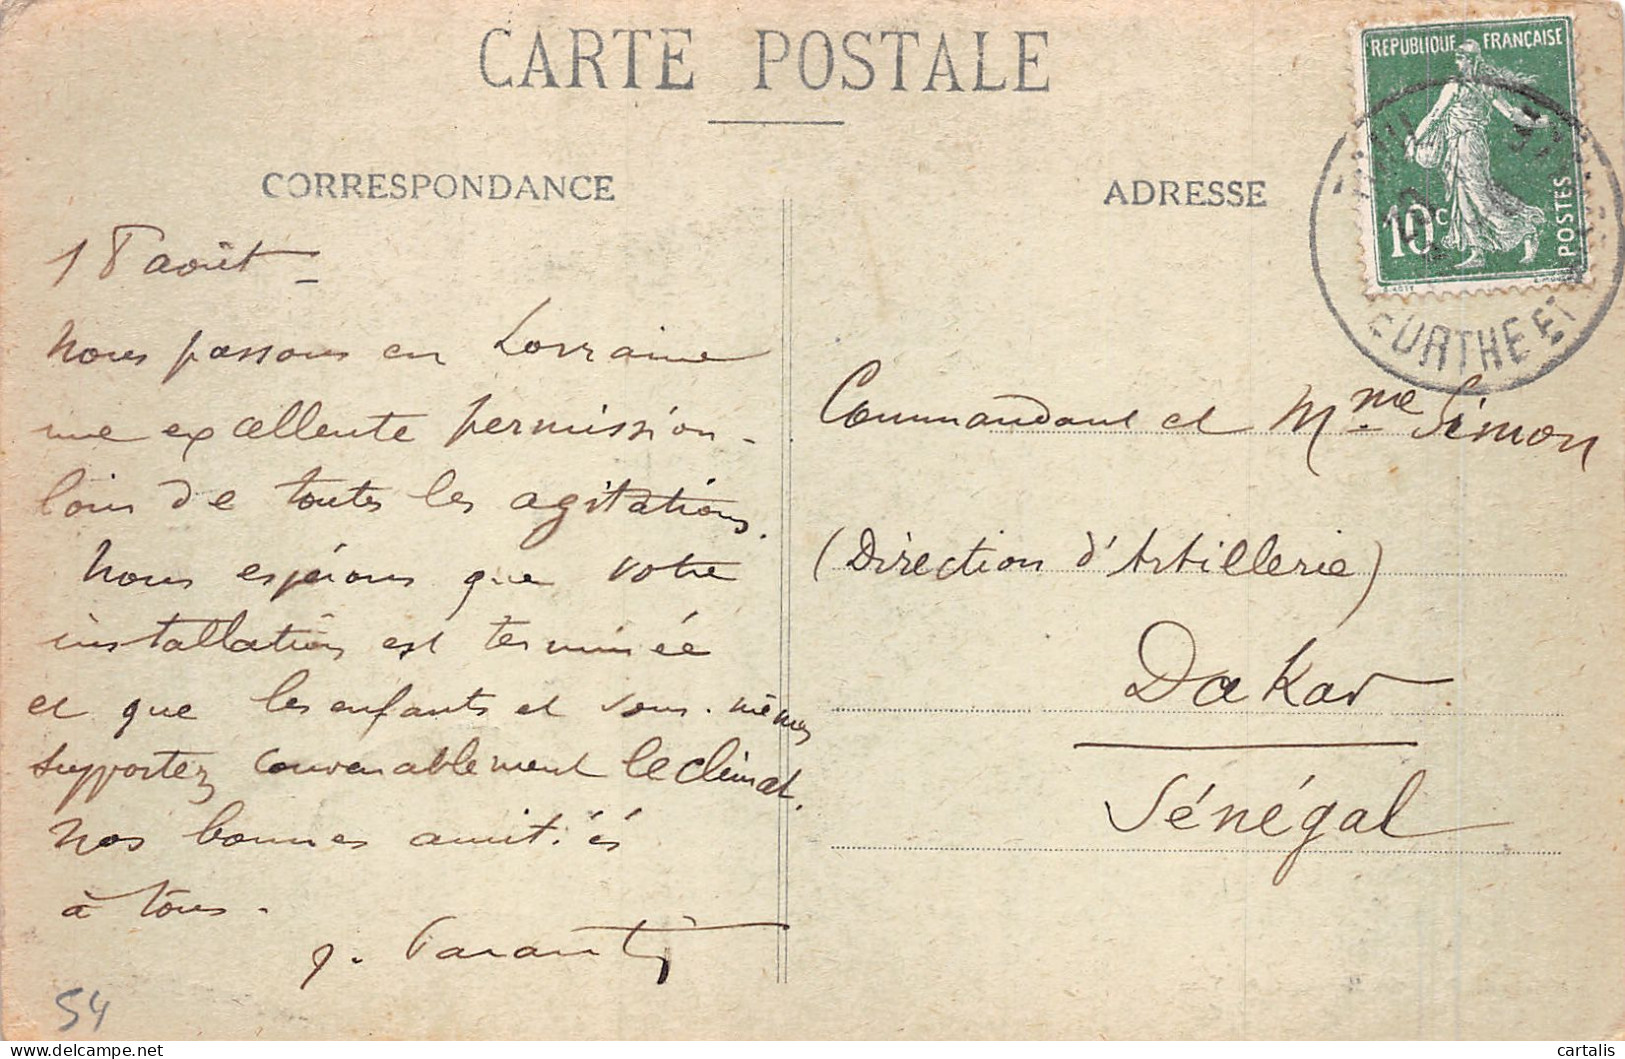 CARTE POSTALE
CORRESPONDANCE
ADRESSE
REPUBLIQUE FRANÇAISE
10c
POSTES
EURTHE ET
18 août -
Nous passons en Lorraine
une excellente permission -
loin de toutes les agitations.
Nous espérons que votre
installation est terminée
et que les enfants et vous-mêmes
supportez convenablement le climat.
Nos bonnes amitiés
à tous.
54
Commandant et Mme Simon
(Direction d'Artillerie)
Dakar
Sénégal
cartalis